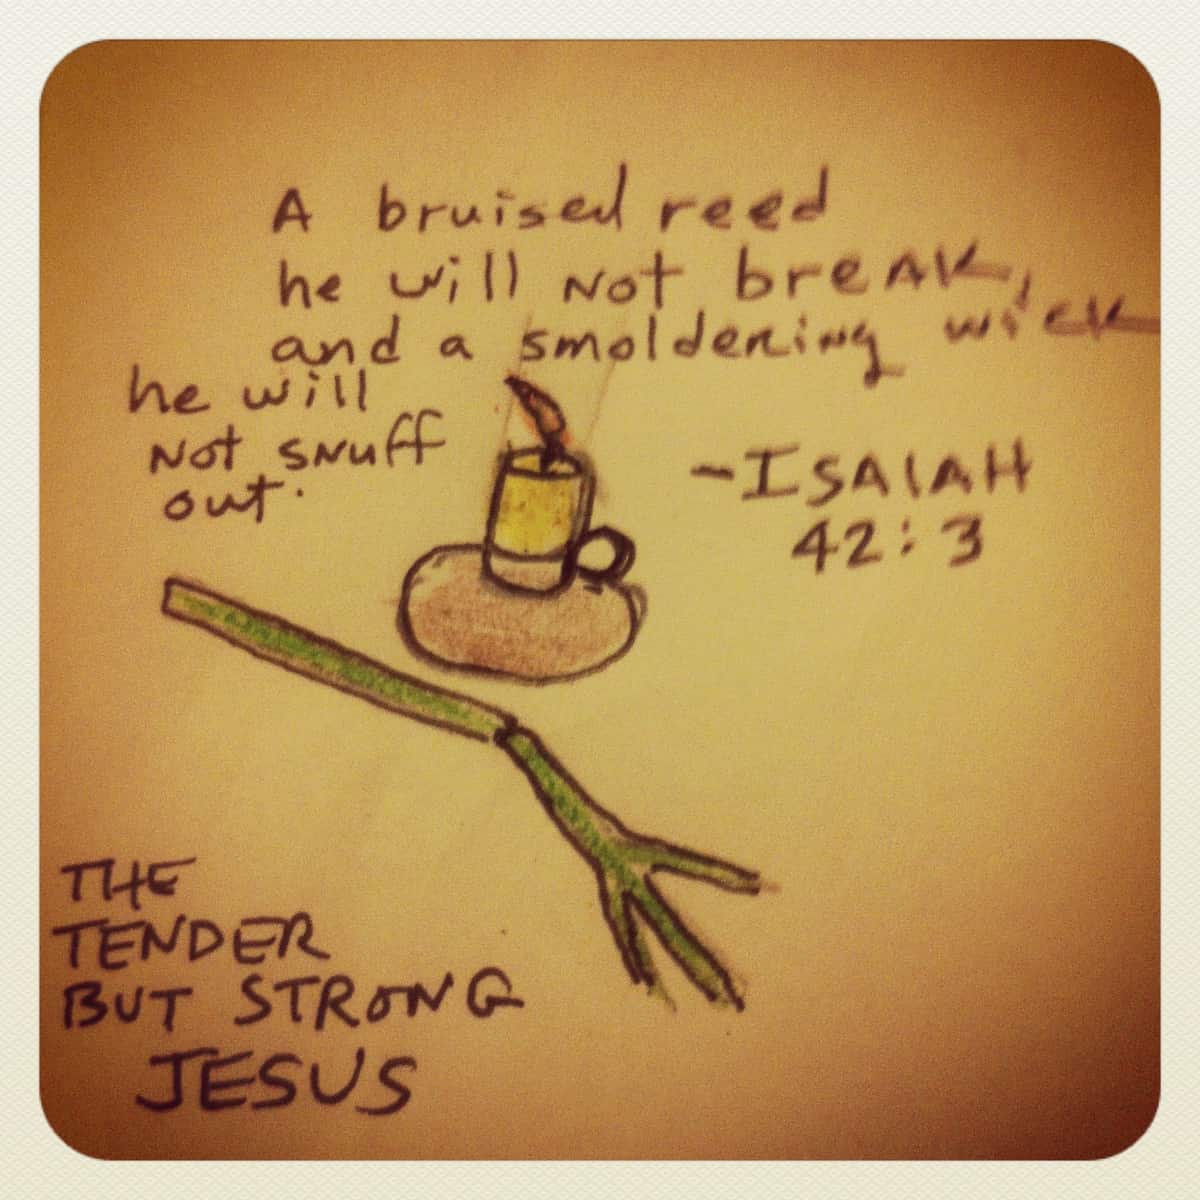 A bruised reed
he will not break,
and a smoldering wick
he will
not snuff
out.
-ISAIAH
42:3
THE
TENDER
BUT STRONG
JESUS